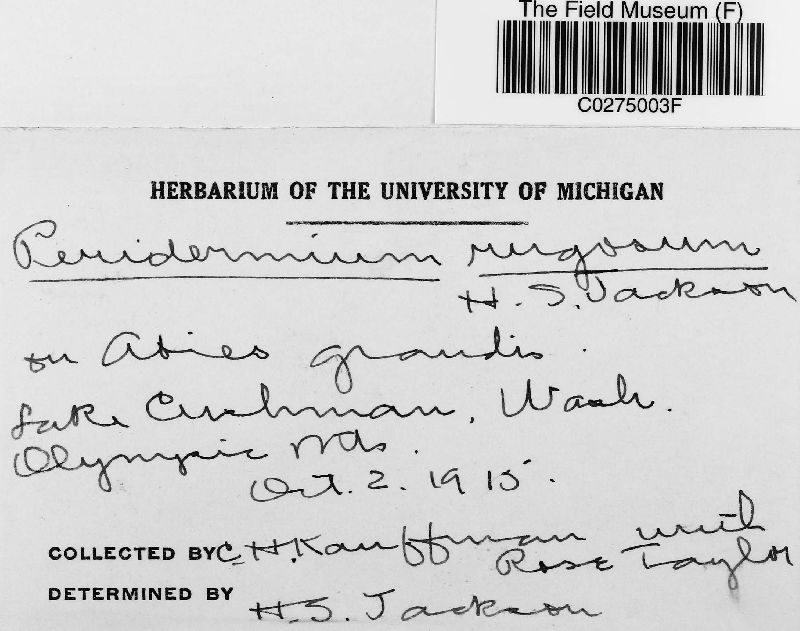 The Field Museum (F)
C0275003F
HERBARIUM OF THE UNIVERSITY OF MICHIGAN
Peridermium rugosum
H. S. Jackson
on Abies grandis.
Lake Cushman, Wash.
Olympic Mts.
Oct. 2. 1915.
COLLECTED BY C. H. Kauffman with
Rose Taylor
DETERMINED BY H. S. Jackson